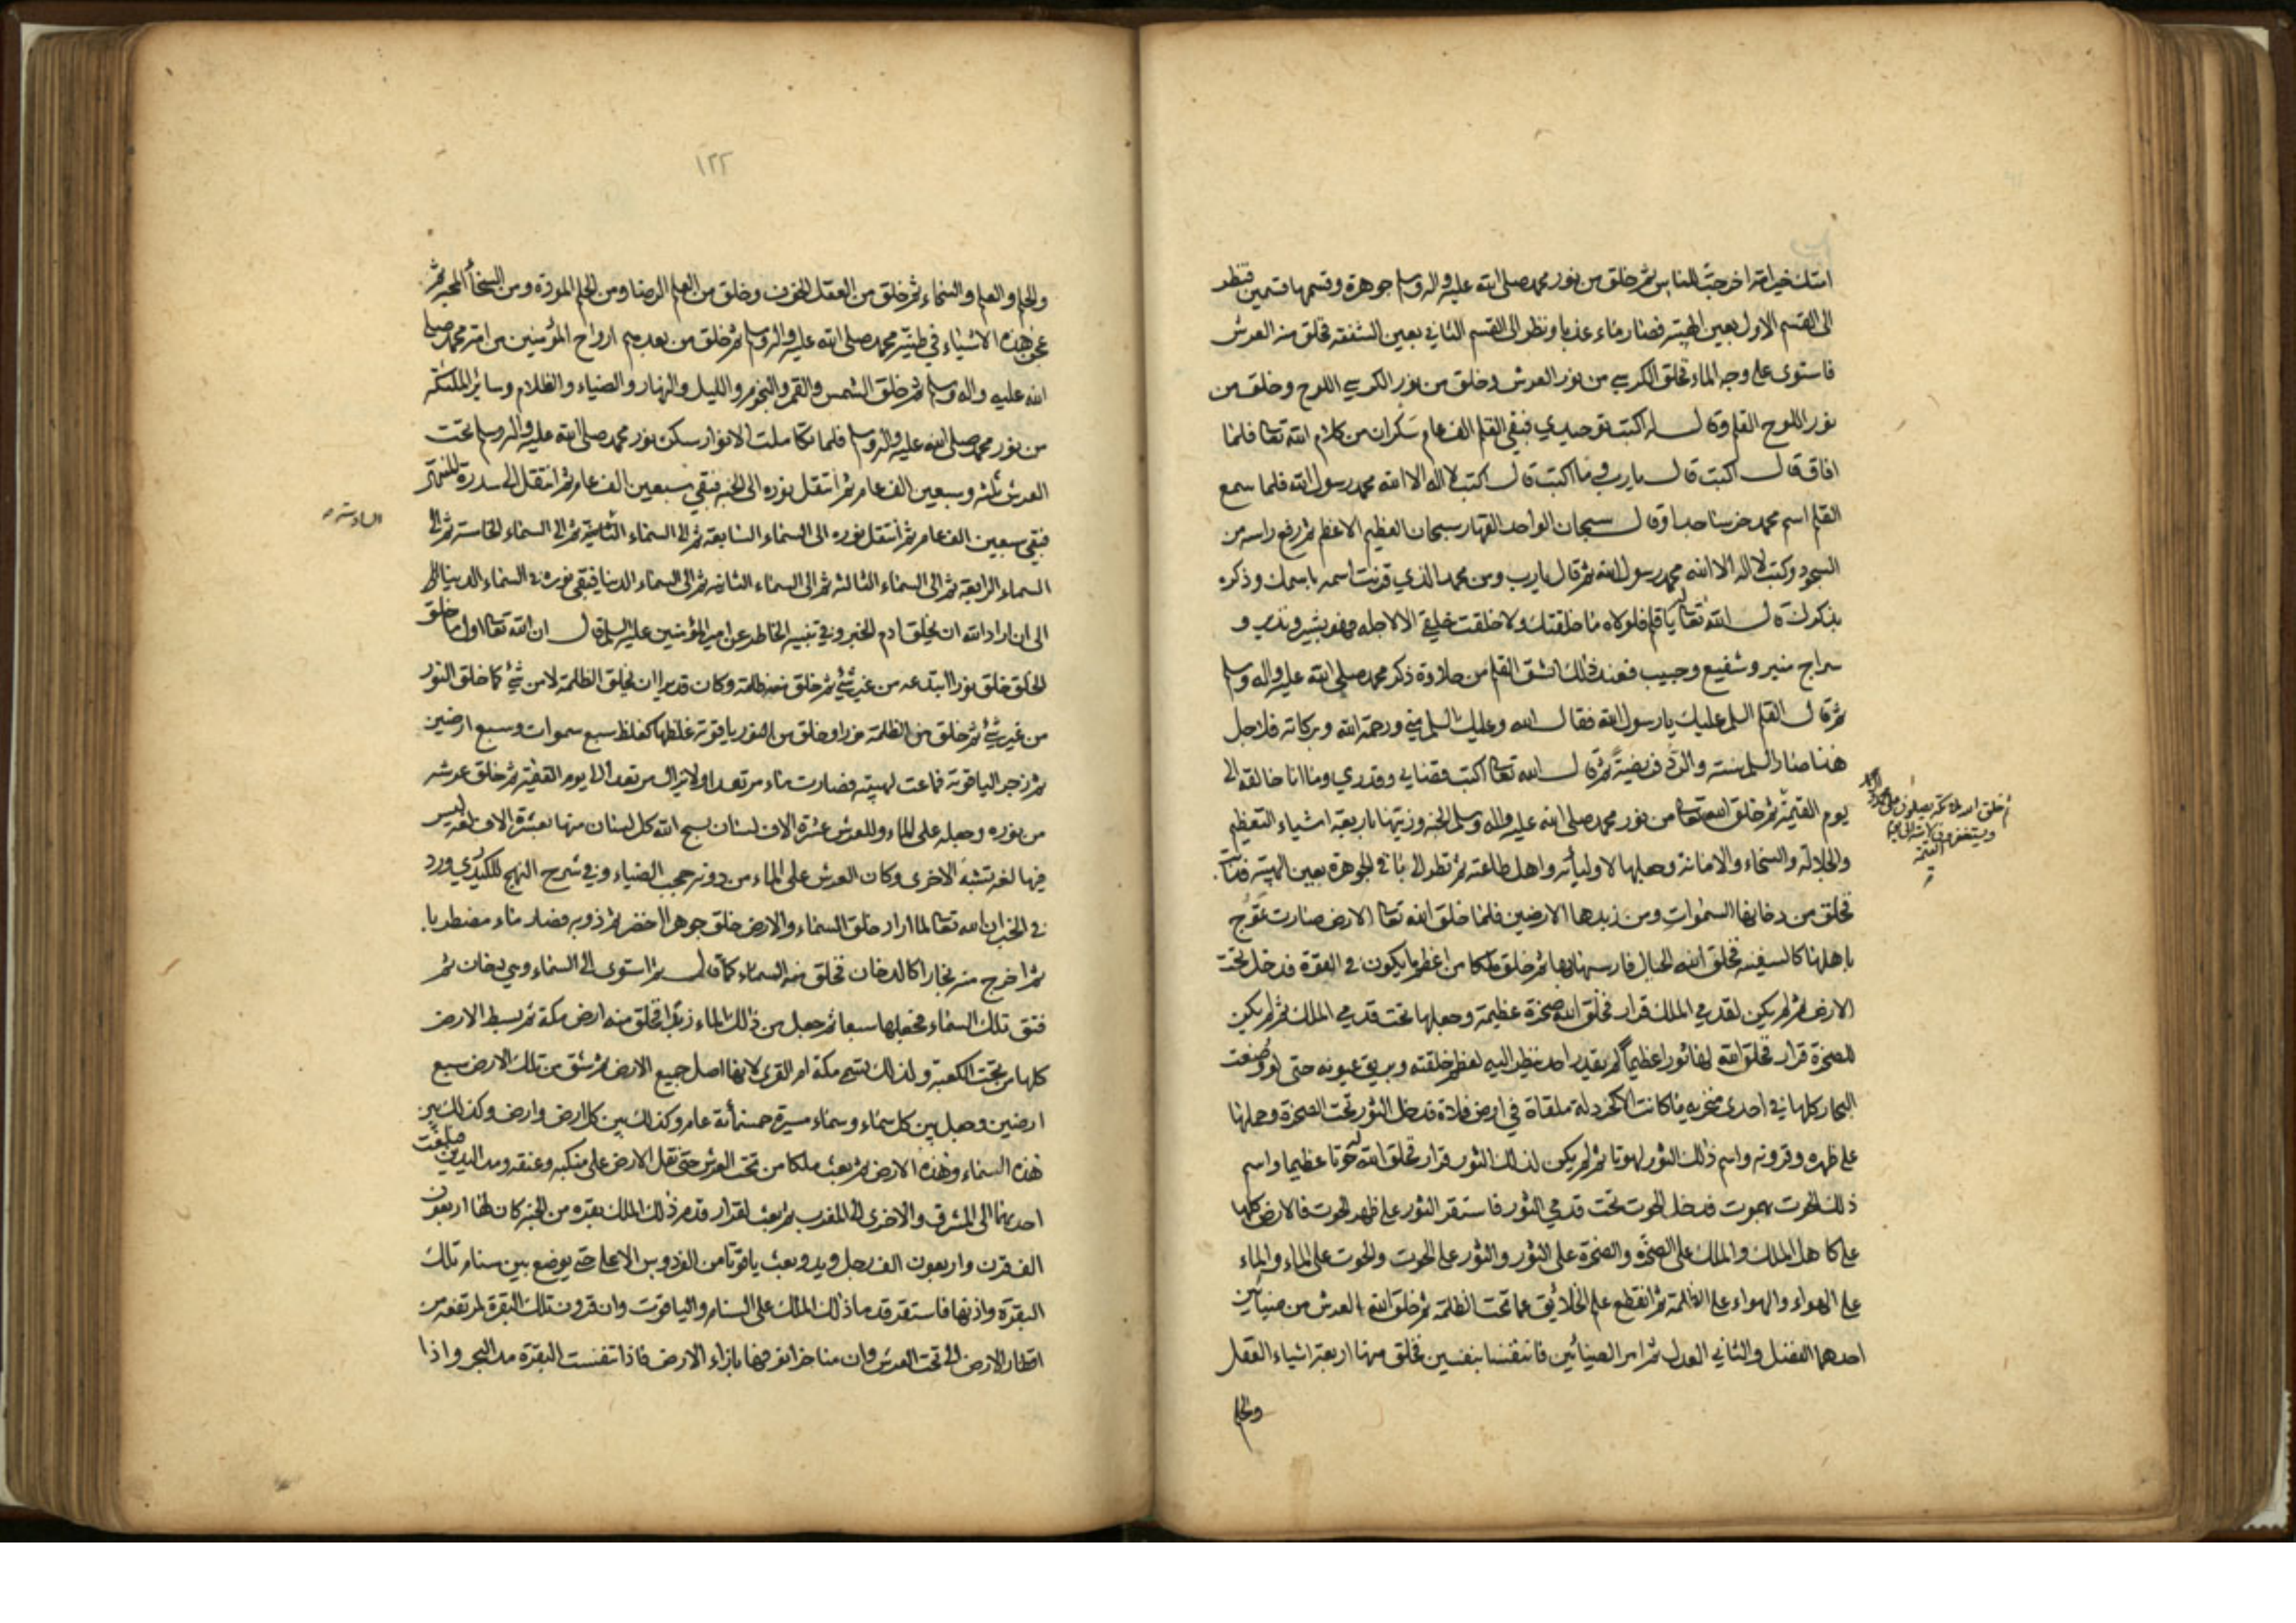 امتك خير امة اخرجت للناس ثم خلق من نور محمد صلى الله عليه واله وسلم جوهرة وقسمها قسمين فنظر
الى القسم الاول بعين الهيبة فصار ماء عذبا ونظر الى القسم الثاني بعين الشفقة فخلق منه العرش
فاستوى على وجه الماء فخلق الكرسي من نور العرش وخلق من نور الكرسي اللوح وخلق من
نور اللوح القلم وقال له اكتب توحيدي فبقي القلم الف عام سكران من كلام الله تعا فلما
افاق قال اكتب قال يا رب وما اكتب قال اكتب لا اله الا الله محمد رسول الله فلما سمع
القلم اسم محمد خر ساجدا وقال سبحان الواحد القهار سبحان العظيم الاعظم ثم رفع راسه من
السجود وكتب لا اله الا الله محمد رسول الله ثم قال يا رب ومن محمد الذي قرنت اسمه باسمك وذكره
بذكرك قال الله تعا له يا قلم فلولاه ما خلقتك ولا خلقت خلقي الا لاجله فهو بشير ونذير و
سراج منير وشفيع وحبيب فعند ذلك انشق القلم من حلاوة ذكر محمد صلى الله عليه واله وسلم
ثم قال القلم السلم عليك يا رسول الله فقال الله وعليك السلم مني ورحمة الله وبركاته فلاجل
هذا صار السلم سنة والرد فريضة ثم قال الله تعا اكتب قضايي وقدري وما انا خالقه الى
يوم القيمة ثم خلق الله تعا من نور محمد صلى الله عليه واله وسلم الجنة وزينها باربعة اشياء التعظيم
والجلالة والسخاء والامانة وجعلها لاوليائه واهل طاعته ثم نظر الى باقي الجوهرة بعين الهيبة فذابت
فخلق من دخانها السموات ومن زبدها الارضين فلما خلق الله تعا الارض صارت تموج
باهلها كالسفينة فخلق الله الجبال فارسيها بها ثم خلق ملكا من اعظم ما يكون في القوة فدخل تحت
الارض ثم لم يكن لقدمي الملك قرار فخلق الله صخرة عظيمة وجعلها تحت قدمي الملك ثم لم يكن
للصخرة قرار فخلق الله لها ثورا عظيما لم يقدر احد ينظر اليه لعظم خلقته وبريق عيونه حتى لو وضعت
البحار كلها في احدى منخريه ما كانت الا كخردلة ملقاة في ارض فلاة فدخل الثور تحت الصخرة وحملها
على ظهره وقرونه واسم ذلك الثور لهوتا ثم لم يكن لذلك الثور قرار فخلق الله له حوتا عظيما واسم
ذلك الحوت بهموت فدخل الحوت تحت قدمي الثور فاستقر الثور على ظهر الحوت فالارض كلها
على كاهل الملك والملك على الصخرة والصخرة على الثور والثور على الحوت والحوت على الماء والماء
على الهواء والهواء على الظلمة ثم انقطع علم الخلائق عما تحت الظلمة ثم خلق الله العرش من ضيائين
احدهما الفضل والثاني العدل ثم امر الضيائين فانتفسا بنفسين فخلق منها اربعة اشياء العقل
والحلم
ثم خلق الله ملائكة يصلون على محمد وال محمد
ويستغفرون لامته الى يوم
القيمة
١٢٢
والحلم والعلم والسخاء ثم خلق من العقل الخوف وخلق من العلم الرضا ومن الحلم المودة ومن السخاء المحبة ثم
عجن هذه الاشياء في طينة محمد صلى الله عليه واله وسلم ثم خلق من بعدهم ارواح المؤمنين من امة محمد صلى
الله عليه واله وسلم ثم خلق الشمس والقمر والنجوم والليل والنهار والضياء والظلام وسائر الملئكة
من نور محمد صلى الله عليه واله وسلم فلما تكاملت الانوار سكن نور محمد صلى الله عليه واله وسلم تحت
العرش ثلثة وسبعين الف عام ثم انتقل نوره الى الجنة فبقي سبعين الف عام ثم انتقل الى سدرة المنتهى
فبقي سبعين الف عام ثم انتقل نوره الى السماء السابعة ثم الى السماء الثانية ثم الى السماء الخامسة ثم الى
السادسة
السماء الرابعة ثم الى السماء الثالثة ثم الى السماء الثانية ثم الى السماء الدنيا فبقي نوره في السماء الدنيا
الى ان اراد الله ان يخلق ادم الخبر وفي تنبيه الخاطر عن امير المؤمنين عليه السلم قال ان الله تعا اول ما خلق
الخلق خلق نورا ابتدعه من غير شئ ثم خلق منه ظلمة وكان قديرا ان يخلق الظلمة لا من شئ كما خلق النور
من غير شئ ثم خلق من الظلمة نورا وخلق من النور ياقوتة غلظها كغلظ سبع سموات وسبع ارضين
ثم زجر الياقوتة فماعت لهيبته فصارت ماء مرتعدا ولا يزال مرتعدا الى يوم القيمة ثم خلق عرشه
من نوره وجعله على الماء وللعرش عشرة الاف لسان يسبح الله كل لسان منها بعشرة الاف لغة ليس
فيها لغة تشبه الاخرى وكان العرش على الماء من دونه حجب الضياء وفي شرح النهج للكيدري ورد
في الخبر ان الله تعا لما اراد خلق السماء والارض خلق جوهرا اخضر ثم ذوبه فصار ماء مضطربا
ثم اخرج منه بخارا كالدخان فخلق منه السماء كما قال ثم استوى الى السماء وهي دخان ثم
فتق تلك السماء فجعلها سبعا ثم جعل من ذلك الماء زبدا فخلق منه ارض مكة ثم بسط الارض
كلها من تحت الكعبة ولذلك تسمى مكة ام القرى لانها اصل جميع الارض ثم شق من تلك الارض سبع
ارضين وجعل بين كل سماء وسماء مسيرة خمسمائة عام وكذلك بين كل ارض وارض وكذلك بين
هذه السماء وهذه الارض ثم بعث ملكا من تحت العرش حتى نقل الارض على منكبه وعنقه ومد اليدين فبلغت
احديهما الى المشرق والاخرى الى المغرب ثم بعث لقرار قدم ذلك الملك بقرة من الجنة كان لها اربعون
الف قرن واربعون الف رجل ويد وبعث ياقوتا من الفردوس الاعلى حتى يوضع بين سنام تلك
البقرة واذنها فاستقر قدما ذلك الملك على السنام والياقوت وان قرون تلك البقرة لمرتفعة من
اقطار الارض الى تحت العرش وان مناخر انوفها بازاء الارض فاذا تنفست البقرة مد البحر واذا